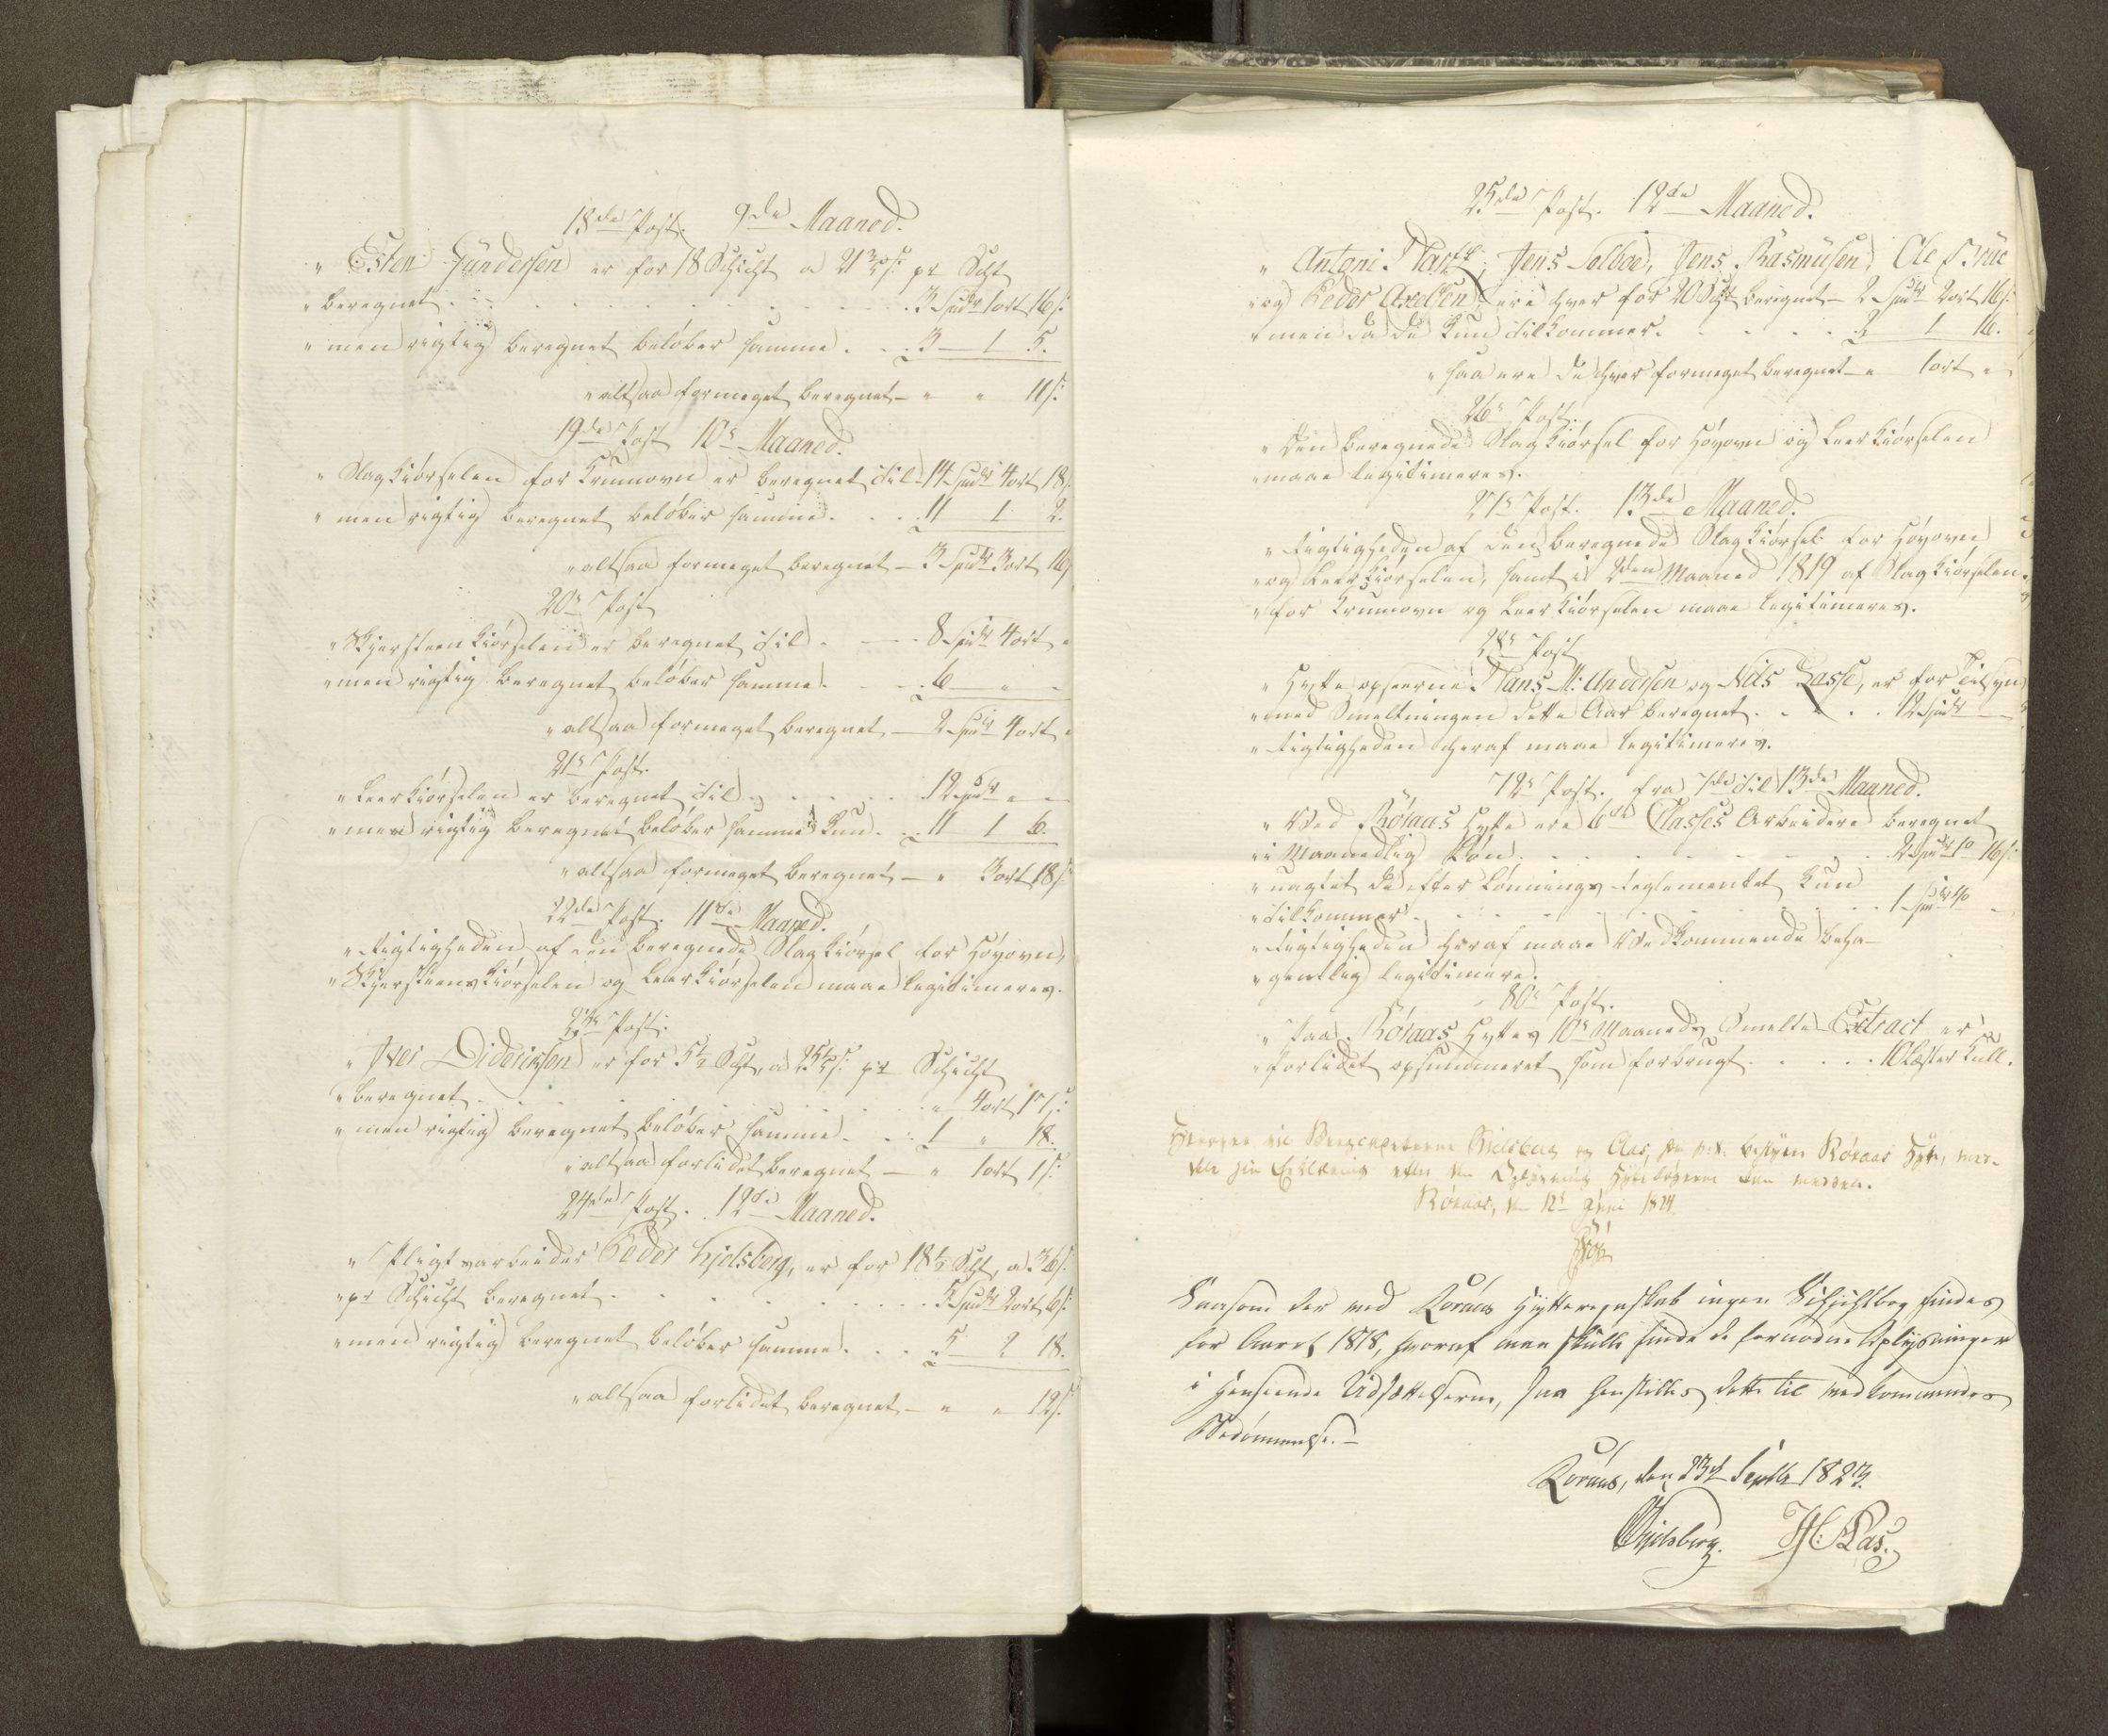 18de Post. 9de Maaned.
" Esten Gundersen er for 18 Schicht a 21 3/5 s: pr Scht
" beregnet . . . . . . . 3 Spdr 1 ort 16 s:
" men rigtig beregnet beløber samme . . . 3 1 5.
" altsaa formeget beregnet - " " 11 s:
19de Post 10de Maaned.
" Slagkiørselen for Krumovn er beregnet til 14 Spdr 4 ort 18
" men rigtig beregnet beløber samme . . . 11 1 2.
" altsaa formeget beregnet - 3 Spdr 3 ort 16
20de Post
" Skjersteenkiørselen er beregnet til . - . 8 Spdr 4 ort "
" men rigtig beregnet beløber samme . . . 6 " "
" altsaa formeget beregnet - 2 Spdr 4 ort "
21de Post.
" Leerkiørselen er beregnet til . . . 12 Spdr " "
" men rigtig beregnet beløber samme kun . . 11 1 6.
" altsaa formeget beregnet - " 3 ort 18 s:
22de Post. 11de Maaned.
" Rigtigheden af den beregnede Slagkiørsel for Høyovn,
" Skjersteenskiørselen og Leerkiørselen maae legitimeres.
23de Post.
" Iver Diderichsen er for 5 1/2 Scht, a pr Schicht
" beregnet . . . . . . " 4 ort 17 s:
" men rigtig beregnet beløber samme . . . 1 " 18.
" altsaa forlidet beregnet - " 1 ort 1 s:
24de Post. 12de Maaned.
" Pligtsarbeider Peder Hjelsberg, er for 18 1/2 Scht, a 36 s:
" pr Schicht beregnet . . . . . . 5 Spdr 2 ort 6 s:
" men rigtig beregnet beløber samme . . . 5 2 18.
" altsaa forlidet beregnet - " " 12 s:
25de Post. 12de Maaned.
" Antoni Jens Solboe, Jens Rasmusen, Ole Brue
" og Peder Axelsen, ere hver for 20 Scht beregnet - 2 Spdr 2 ort 16 s:
" men da de kun tilkommer . . . . . 2 1 16.
" saa ere de hver formeget beregnet - " 1 ort "
26de Post.
" Den beregnede Slagkiørsel for Høyovn og Leerkiørselen
" maae legitimeres.
27de Post. 13de Maaned.
" Rigtigheden af den beregnede Slagkiørsel for Høyovn
" og Leerkiørselen, samt i 2den Maaned 1819 af Slagkiørselen
" for Krumovn og Leerkiørselen maae legitimeres.
28de Post
" Hytteopseerne Hans M: Andersen og Nils Lasse, er for Tilsyn
" med Smeltningen dette Aar beregnet . . . . 12 Spdr
" Rigtigheden heraf maae legitimeres.
72de Post. fra 7de til 13de Maaned.
" Ved Røraas Hytte ere 6te Classes Arbeidere beregnet
" i Maanedlig Løn . . . . . . 2 Spdr 1o 16 s:
" uagtet de efter Lønnings-Reglementet kun
" tilkommer . . . . . . 1 Spdr 4o
" Rigtigheden heraf maae Vedkommende beha-
" gentlig legitimere.
80de Post.
" Paa Røraas Hyttes 10de Maaneds Smelte-Extract er
" forlidet opsummeret som forbrugt . . . . 10 Læster Kull.
til Hjelsberg og Aas, Røraas Hytte,
sin Erklæring
Røraas, den 12te Juni 1821
Saasom der ved Røraas Hytteregnskab ingen Schichtbog findes
for Aaret 1818, hvoraf man skulle finde de fornødne Oplysninger
i Henseende Udsættelserne, saa henstilles dette til vedkommendes
Bedømmelse. -
Røraas, den 23de Septbr 1823.
Hjelsberg. H: Aas.